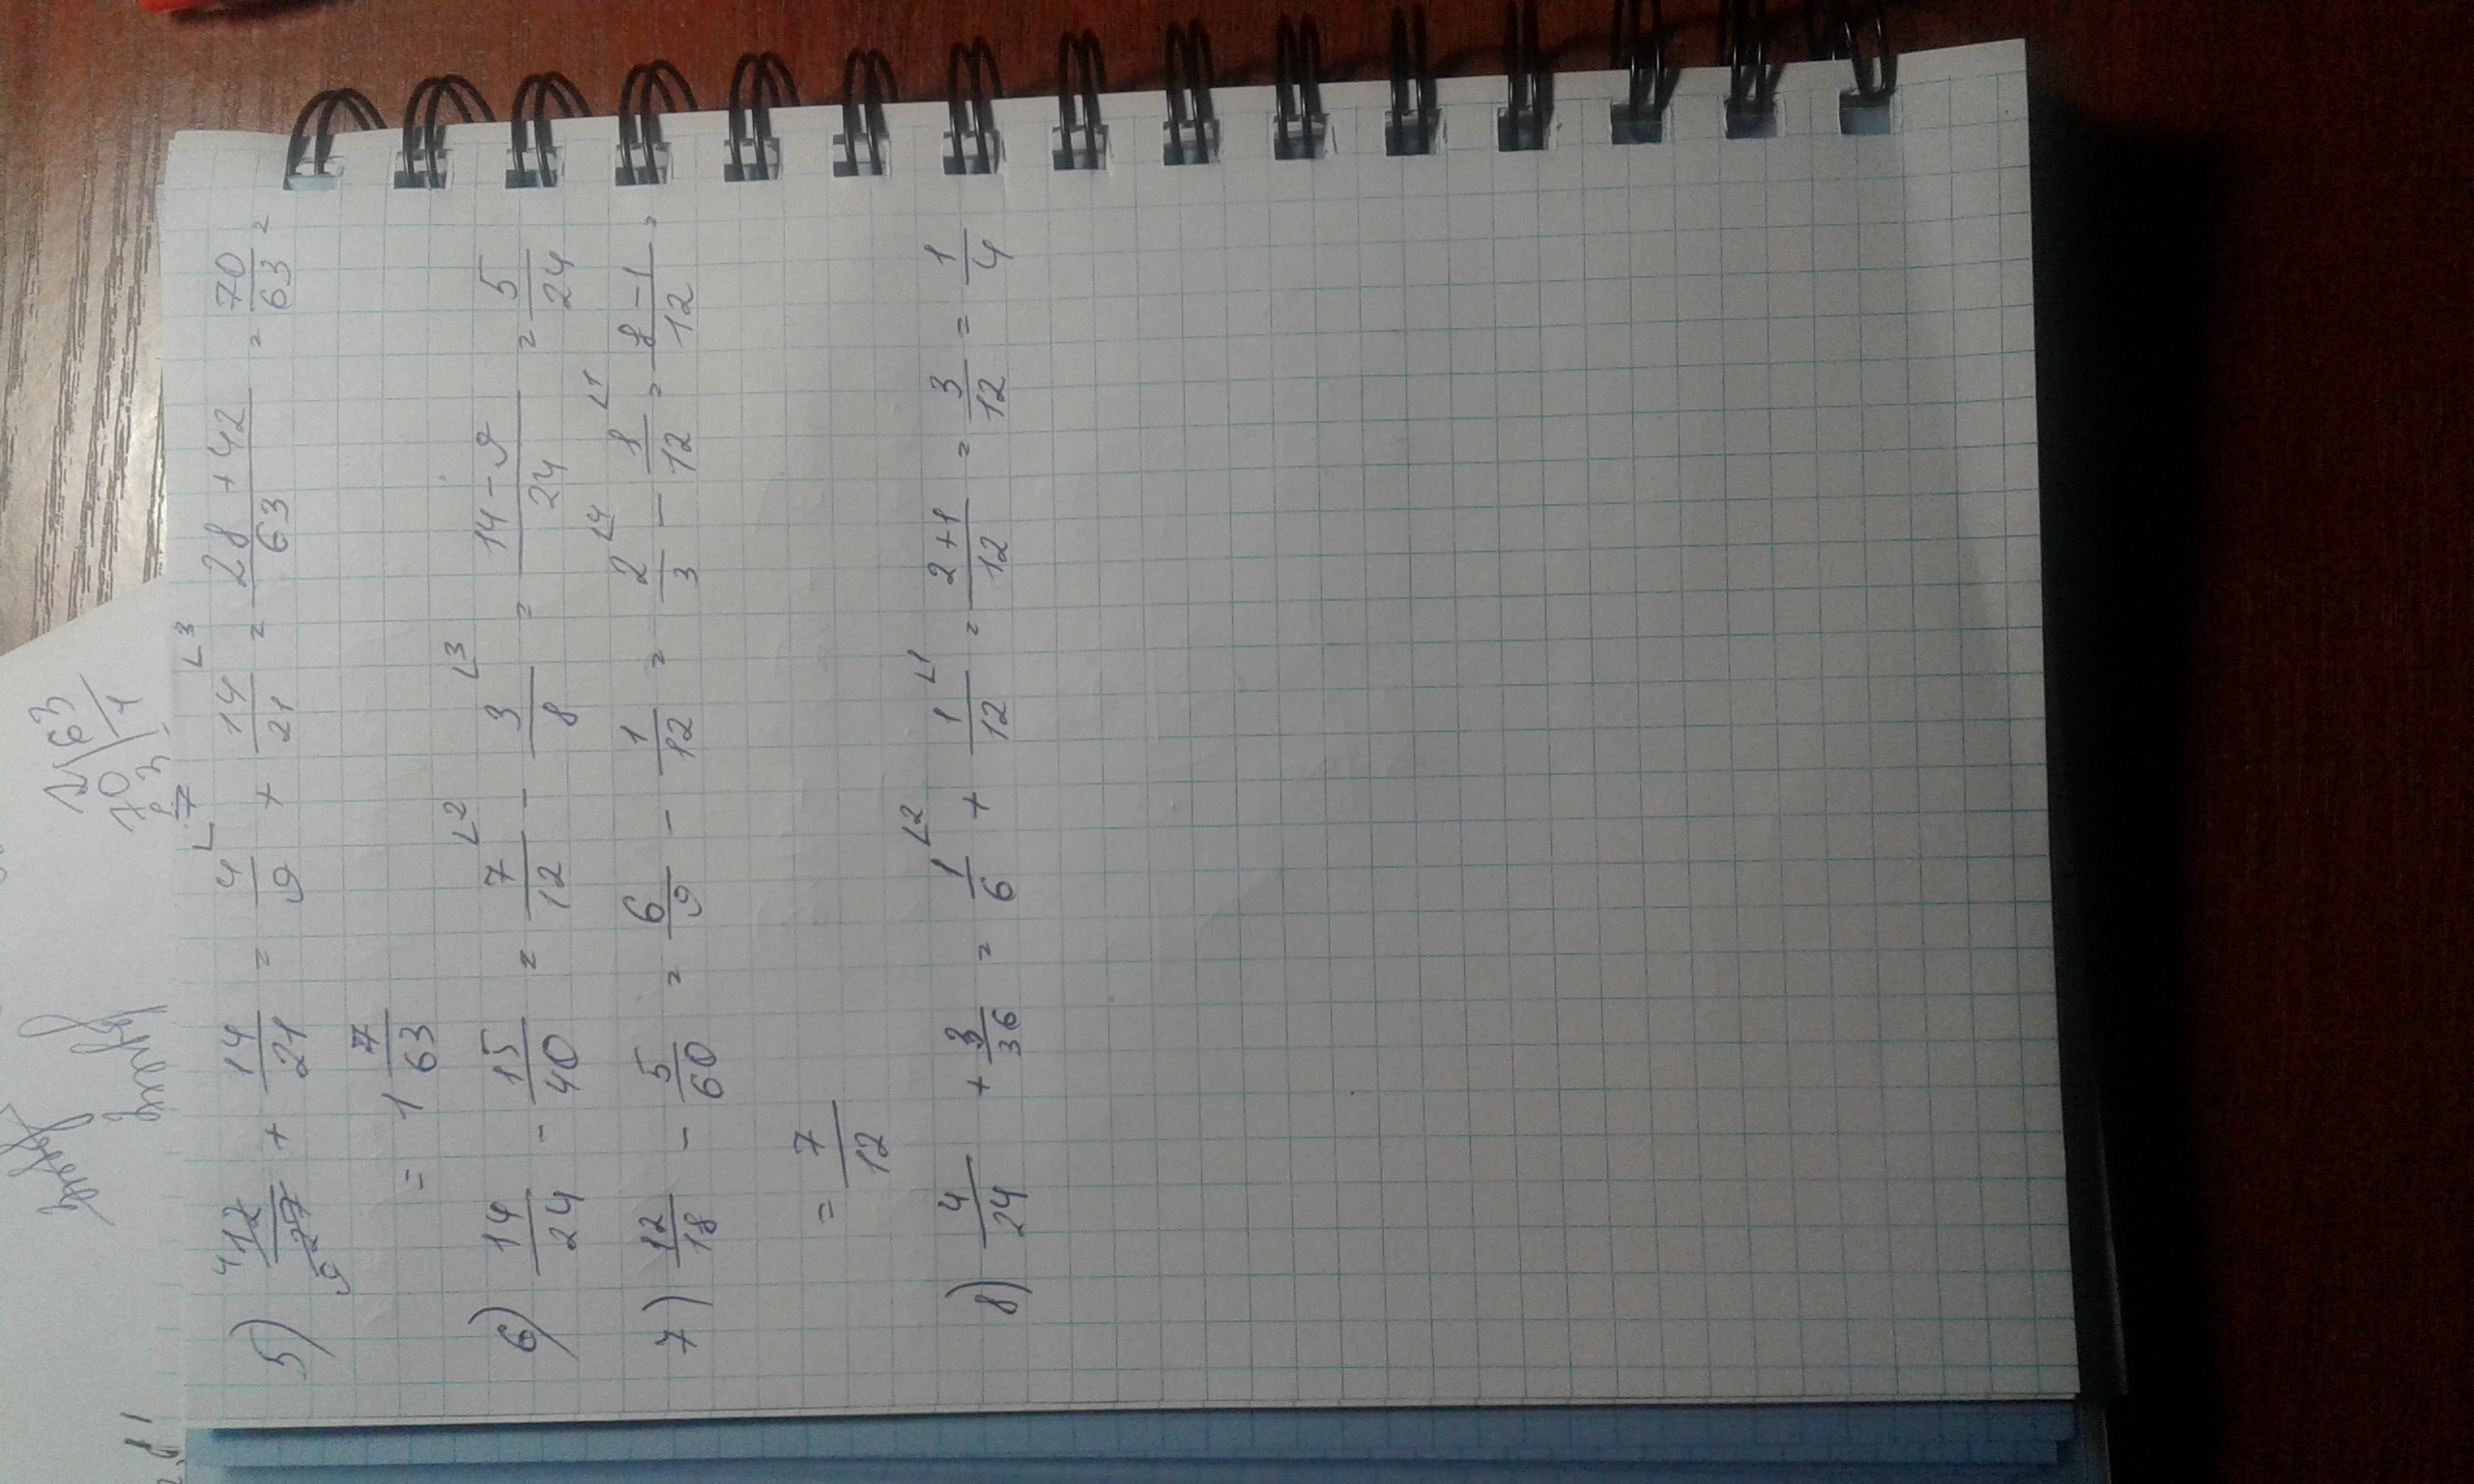 5) 12/27 + 14/21 = 4/9 + 14/21 = 28+42/63 = 70/63 =
= 1 7/63
6) 14/24 - 15/40 = 7/12 - 3/8 = 14-9/24 = 5/24
7) 12/18 - 5/60 = 6/9 - 1/12 = 2/3 - 8/12 = 8-1/12 =
= 7/12
8) 4/24 + 3/36 = 1/6 + 1/12 = 2+1/12 = 3/12 = 1/4